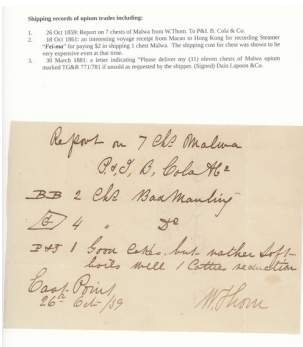 Shipping records of opium trades including:
1. 26 Oct 1859: Report on 7 chests of Malwa from W.Thom. To P&I. B. Cola & Co.
2. 18 Oct 1861: an interesting voyage receipt from Macao to Hong Kong for recording Steamer
"Fei-ma" for paying $2 in shipping 1 chest Malwa. The shipping cost for chest was shown to be
very expensive even at that time.
3. 30 March 1881: a letter indicating "Please deliver my (11) eleven chests of Malwa opium
marked TG&& 771/781 if unsold as requested by the shipper. (Signed) Dain Lapoos &Co.
Report on 7 Chts Malwa
P. & I, B, Cola & Co
BB 2 Chts Bad
4 " Do
P&I 1 Good Cakes, but rather Soft
boils well 1 Cattie reduction
East Point
26th Oct /59
W. Thom